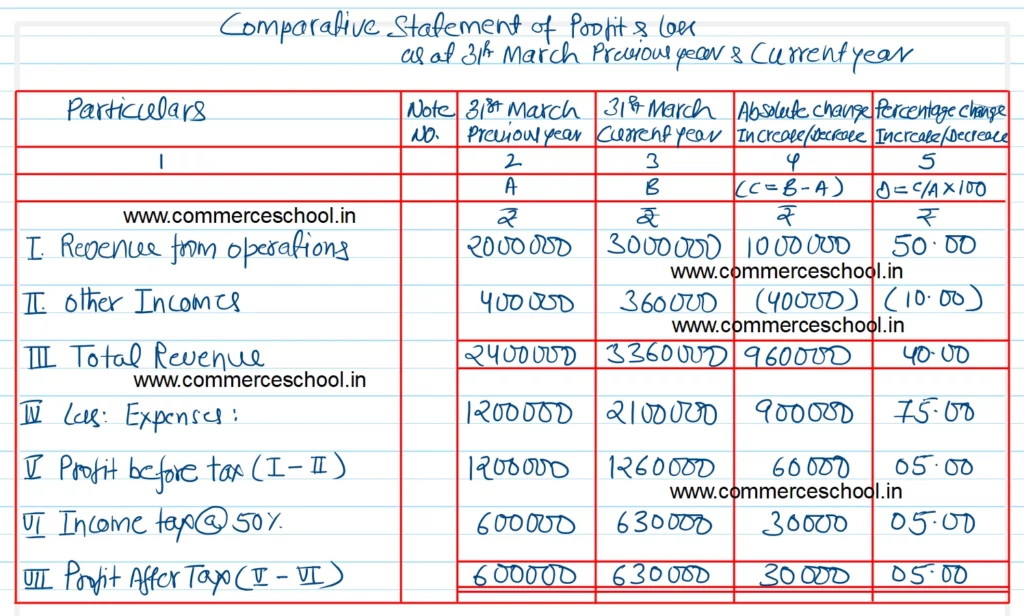 Comparative Statement of Profit & Loss
as at 31st March Previous year & Current year
Particulars Note No. 31st March Previous year 31st March Current year Absolute change Increase/Decrease Percentage change Increase/Decrease
1 2 3 4 5
A B (C=B-A) D=C/A×100
www.commerceschool.in ₹ ₹ ₹ ₹
I. Revenue from operations 2000000 3000000 1000000 50.00
www.commerceschool.in
II. Other Incomes 400000 360000 (40000) (10.00)
www.commerceschool.in
III Total Revenue 2400000 3360000 960000 40.00
www.commerceschool.in
IV Less: Expenses: 1200000 2100000 900000 75.00
V Profit before tax (I-II) 1200000 1260000 60000 05.00
www.commerceschool.in
VI Income tax@50% 600000 630000 30000 05.00
VII Profit After Tax (V-VI) 600000 630000 30000 05.00